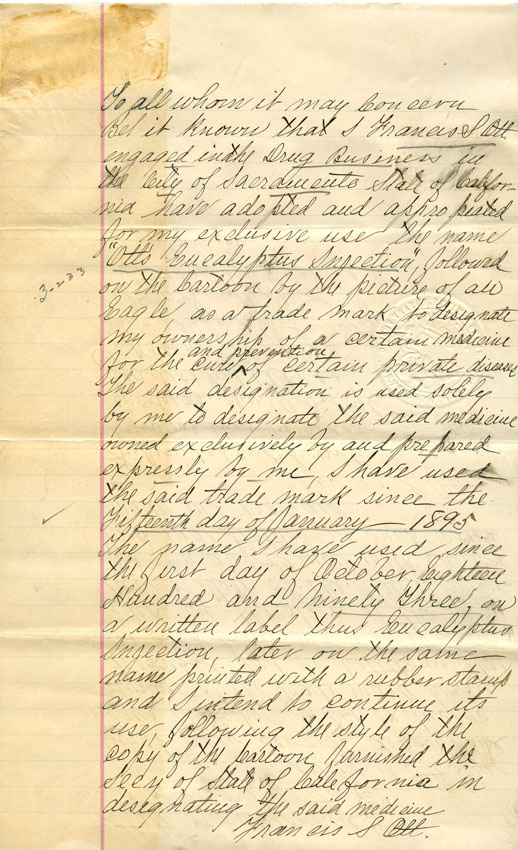 To all whom it may Concern
Bel it known that I Francis S Ott
engaged in the Drug Business in
the City of Sacramento State of Califor-
nia have adopted and appropiated
for my exclusive use the name
"Ott's Eucalyptus Injection", followed
on the Cartoon by the picture of an
Eagle, as a trade mark to designate
my ownership of a certain medicine
and prevention
for the cure of certain private diseases
The said designation is used solely
by me to designate the said medicine
owned exclusively by and prepared
expressly by me, I have used
the said trade mark since the
Fifteenth day of January - 1895
The name I have used since
the first day of October Eighteen
Hundred and Ninety Three, on
a written label thus Eucalyptus
Injection, later on the same
name printed with a rubber stamp
and I intend to continue its
use following the style of the
copy of the Cartoon furnished the
Secy of State of California in
designating the said medicine
Francis S Ott.
3-233